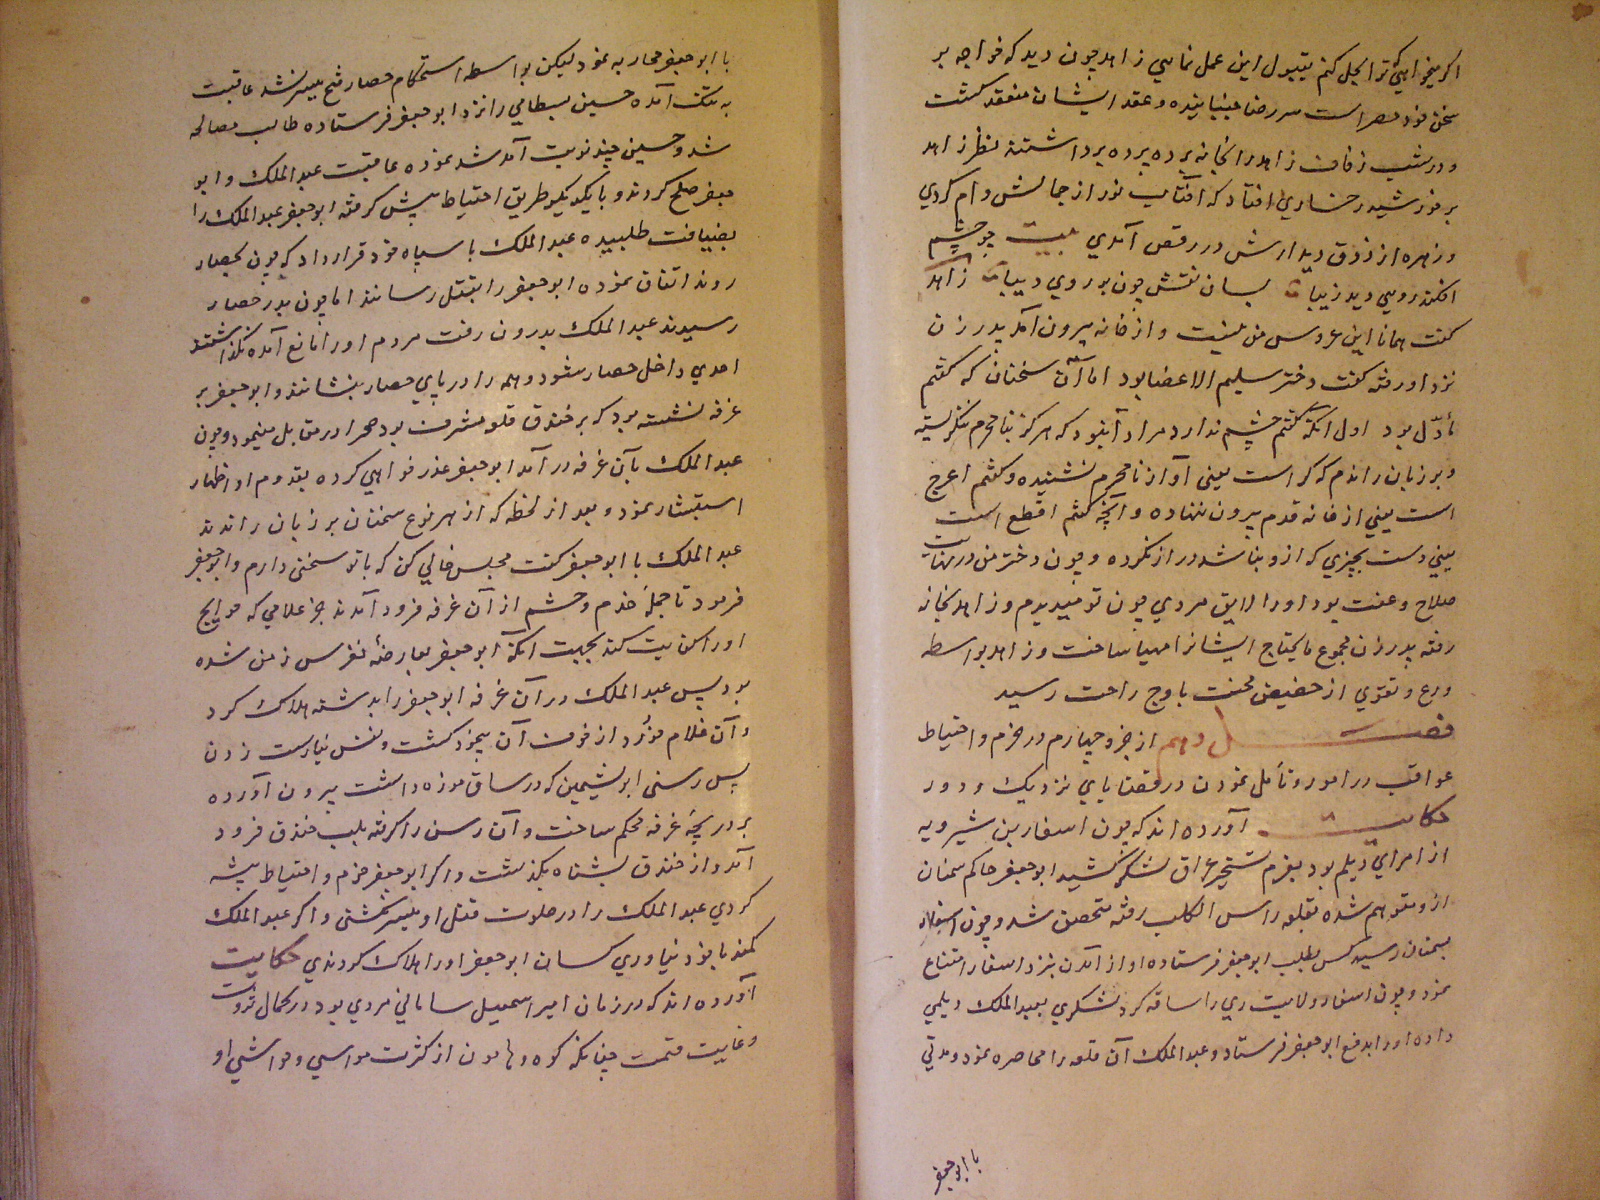 اگر میخواهی که ترا بحل کنم بقبول این عمل نمایی زاهد چون دید که خواجه بر
سخن خود مصر است سر رضا بجنبانیده و عقد ایشان منعقد گشت
و در شب زفاف زاهد را بخانه برده پرده برداشتند نظر زاهد
بر خورشید رخساری افتاد که آفتاب نور از جمالش وام کردی
و زهره از ذوق دیدارش در رقص آمدی بیت چو چشم
افکند رویی دید زیبا بسان نقش چون بر روی دیبا زاهد
گفت همانا این عروس من نیست و از خانه بیرون آمد پدر زن
نزد او رفته گفت دختر سلیم الاعضا بود اما آن سخنان که گفتم
مأوّل بود اول آنکه گفتم چشم ندارد مراد آن بود که هرگز بنا محرم ننگریسته
و بر زبان راندم که کر است یعنی آواز نامحرم نشنیده و گفتم اعرج
است یعنی از خانه قدم بیرون ننهاده و آنچه گفتم اقطع است
یعنی دست بچیزی که ازو بنا شد دراز نکرده و چون دختر من در نهایت
صلاح و عفت بود او را لایق مردی چون تو میدیدم و زاهد بخانه
رفته پدر زن مجموع ما یحتاج ایشانرا مهیا ساخت و زاهد بواسطه
ورع و تقوی از حضیض محنت باوج راحت رسید
فصل دهم از جزو چهارم در حزم و احتیاط
عواقب در امور و تأمل نمودن در قضایای نزدیک و دور
حکایت آورده اند که چون اسفار بن شیرویه
از امرای دیلم بود بعزم تسخیر عراق لشکر کشید ابو جعفر حاکم سمنان
ازو متوهم شده بقلعه راس الکلب رفته متحصن شد و چون اسفار
بسمنان رسید کس بطلب ابو جعفر فرستاده او از آمدن بنزد اسفار امتناع
نمود و چون اسفار ولایت ری را ساقه کرد لشکری بعبد الملک دیلمی
داده او را بدفع ابو جعفر فرستاد و عبد الملک آن قلعه را محاصره نمود و مدتی
با ابو جعفر
با ابو جعفر محاربه نمود لیکن بواسطه استحکام حصار فتح میسر نشد عاقبت
به تنگ آمده حسین بسطامی را نزد ابو جعفر فرستاده طالب مصالحه
شد و حسین چند نوبت آمد شد نموده عاقبت عبد الملک و ابو
جعفر صلح کردند و با یکدیگر طریق احتیاط پیش گرفته ابو جعفر عبد الملک را
بضیافت طلبیده عبد الملک با سپاه خود قرار داد که چون بحصار
روند اتفاق نموده ابو جعفر را بقتل رسانند اما چون بدر حصار
رسیدند عبد الملک بدرون رفت مردم او را مانع آمده نگذاشتند
احدی داخل حصار شود و همه را در پای حصار بنشانند و ابو جعفر بر
غرفه نشسته بود که بر خندق قلعه مشرف بود صحرا در مقابل مینمود و چون
عبد الملک بآن غرفه در آمد ابو جعفر عذر خواهی کرده بقدوم او اظهار
استبشار نمود و بعد از لحظه که از هر نوع سخنان بر زبان راندند
عبد الملک با ابو جعفر گفت مجلس خالی کن که با تو سخنی دارم و ابو جعفر
فرمود تا جملهٔ خدم و حشم از آن غرفه فرود آمدند جز غلامی که حوایج
او را کفایت کند بجهت آنکه ابو جعفر بعارضهٔ نقرس زمن شده
بود پس عبد الملک در آن غرفه ابو جعفر را بدشنه هلاک کرد
و آن غلام خورد از خوف آن بیخود گشت و نفس نیارست زدن
پس رسنی ابریشمین که در ساق موزه داشت بیرون آورده
بر دریچهٔ غرفه محکم ساخت و آن رسن را گرفته بلب خندق فرود
آمد و از خندق بشناه بگذشت و اگر ابو جعفر حزم و احتیاط پیشه
کردی عبد الملک را در خلوت قتل او میسر نگشتی و اگر عبد الملک
کمند با خود نیاوردی کسان ابو جعفر او را هلاک کردندی حکایت
آورده اند که در زمان امیر اسمعیل سامانی مردی بود در کمال ثروت
و غایت حشمت چنانکه کوه و هامون از کثرت مواسی و مواشی او